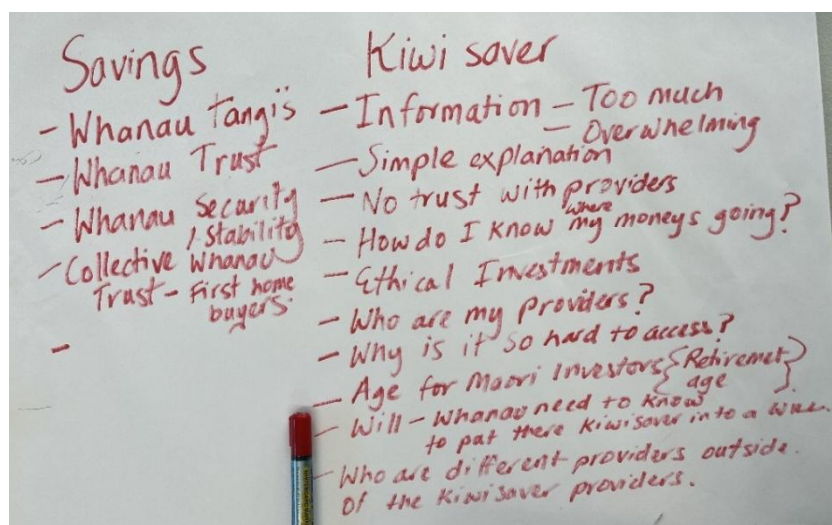 Savings
- Whanau Tangi's
- Whanau Trust
- Whanau Security
/ Stability
- Collective Whanau
Trust - First home
buyers.
-
Kiwi saver
- Information - Too much
- Overwhelming
- Simple explanation
- No trust with providers
- How do I know where my moneys going?
- Ethical Investments
- Who are my providers?
- Why is it so hard to access?
- Age for Maori Investors {Retiremet
age}
- Will - Whanau need to know
to put there Kiwisaver into a will.
- Who are different providers outside.
of the Kiwisaver providers.